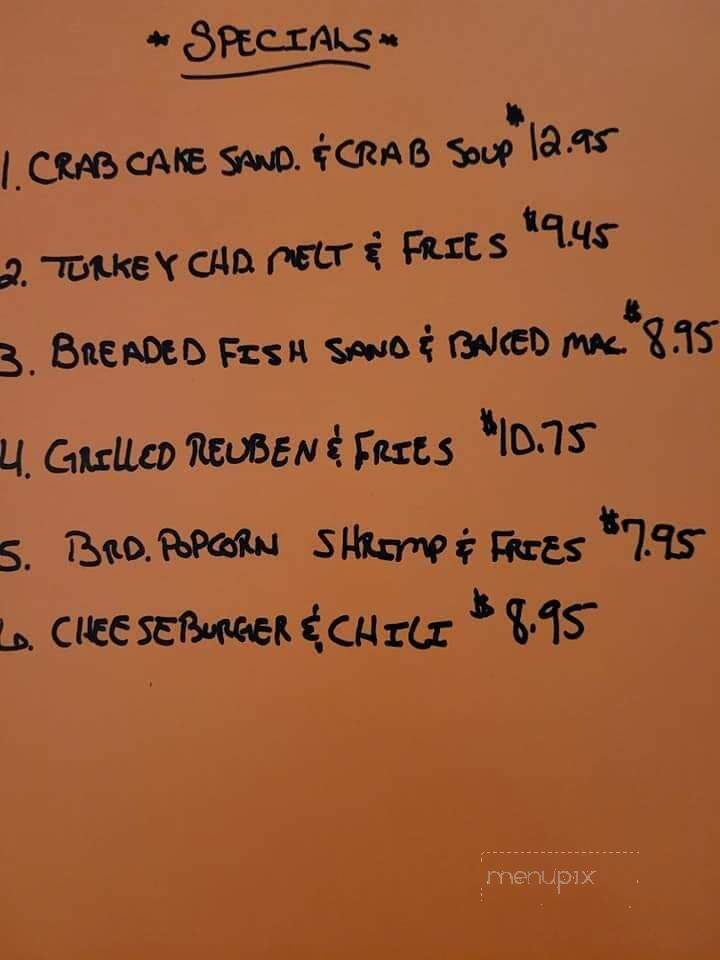 * SPECIALS *
1. CRAB CAKE SAND. & CRAB SOUP $12.95
2. TURKEY CHD. MELT & FRIES $9.45
3. BREADED FISH SAND & BAKED MAC. $8.95
4. GRILLED REUBEN & FRIES $10.75
5. BRD. POPCORN SHRIMP & FRIES $7.95
6. CHEESEBURGER & CHILI $8.95
menupix